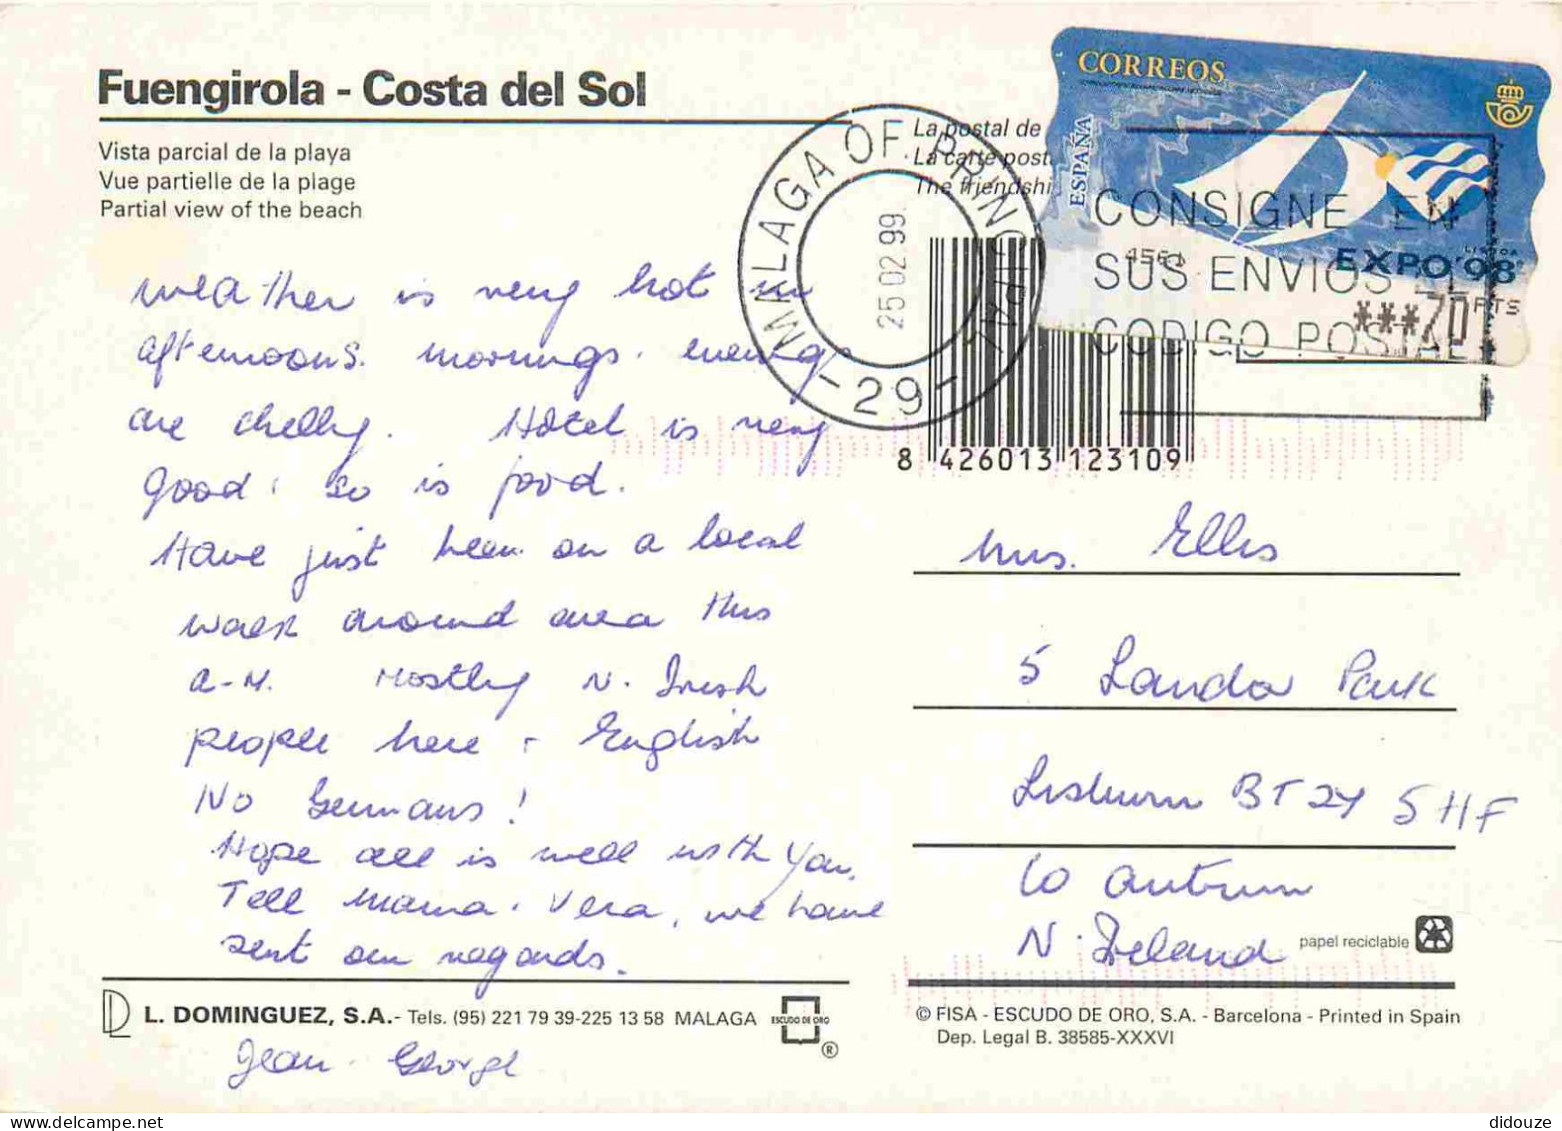 Fuengirola - Costa del Sol
Vista parcial de la playa
Vue partielle de la plage
Partial view of the beach
weather is very hot in
afternoons. mornings. evenings
are chelly. Hotel is very
good. so is food.
Have just been on a local
walk around area this
a-M. Mostly N. Irish
people here + English
No Germans!
Hope all is well with you.
Tell Mama. Vera, we have
sent our regards.
Jean. George
L. DOMINGUEZ, S.A.- Tels. (95) 221 79 39-225 13 58 MALAGA
ESCUDO DE ORO
®
La postal de
La carte post
The friendshi
MALAGA OF. PRINCIPAL
25 02 99
-29-
CORREOS
ESPAÑA
4561
LISBOA
EXPO'98
***70 PTS
CONSIGNE EN
SUS ENVIOS EL
CODIGO POSTAL
8 426013 123109
Mrs. Ellis
5 Park
Lisburn BT 5HF
Co Antrim
N. Ireland
papel reciclable
© FISA - ESCUDO DE ORO, S.A. - Barcelona - Printed in Spain
Dep. Legal B. 38585-XXXVI
didouze